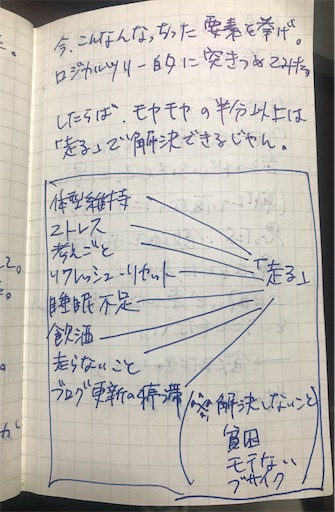 今、こんなんなっちった要素を挙げ。
ロジカルツリー的に突きつめてみた。
したらば、モヤモヤの半分以上は
「走る」で解決できるじゃん。
体型維持
ストレス
考えごと
リフレッシュ・リセット
睡眠不足
飲酒
走らないこと
ブログ更新の停滞
「走る」
解決しないこと
貧困
モテない
ブサイク